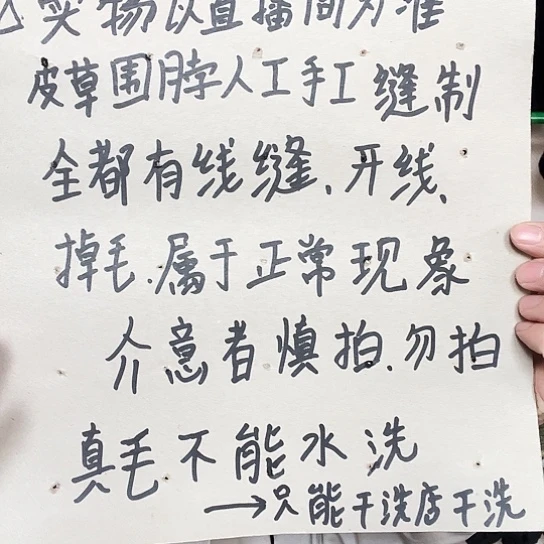 实物以直播间为准
皮草围脖人工手工缝制
全都有线缝、开线、
掉毛.属于正常现象
介意者慎拍.勿拍
真毛不能水洗
→只能干洗店干洗